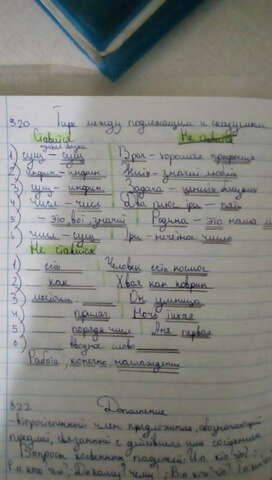 §20. Тире между подлежащим и сказуемым
Ставится Не ставится
1) сущ – сущ Врач – хорошая профессия
2) инфин – инфин Жить – значит любить
3) сущ – инфин. Задача –
4) числ – числ Два плюс три – пять
5) – это, вот, значит Родина – это наша
числ – сущ Три – нечётное число
Не ставится
1) есть Человек есть космос
2) как Хвоя как коврик
3) местоим Он умница
4) прилаг Ночь тихая
5) порядк числ Аня первая
6) вводное слово
Работа, конечно, наслаждение
§22 Дополнение
– второстепенный член предложения, обозначающий
предмет, связанный с действием или состоянием
Вопросы косвенных падежей: